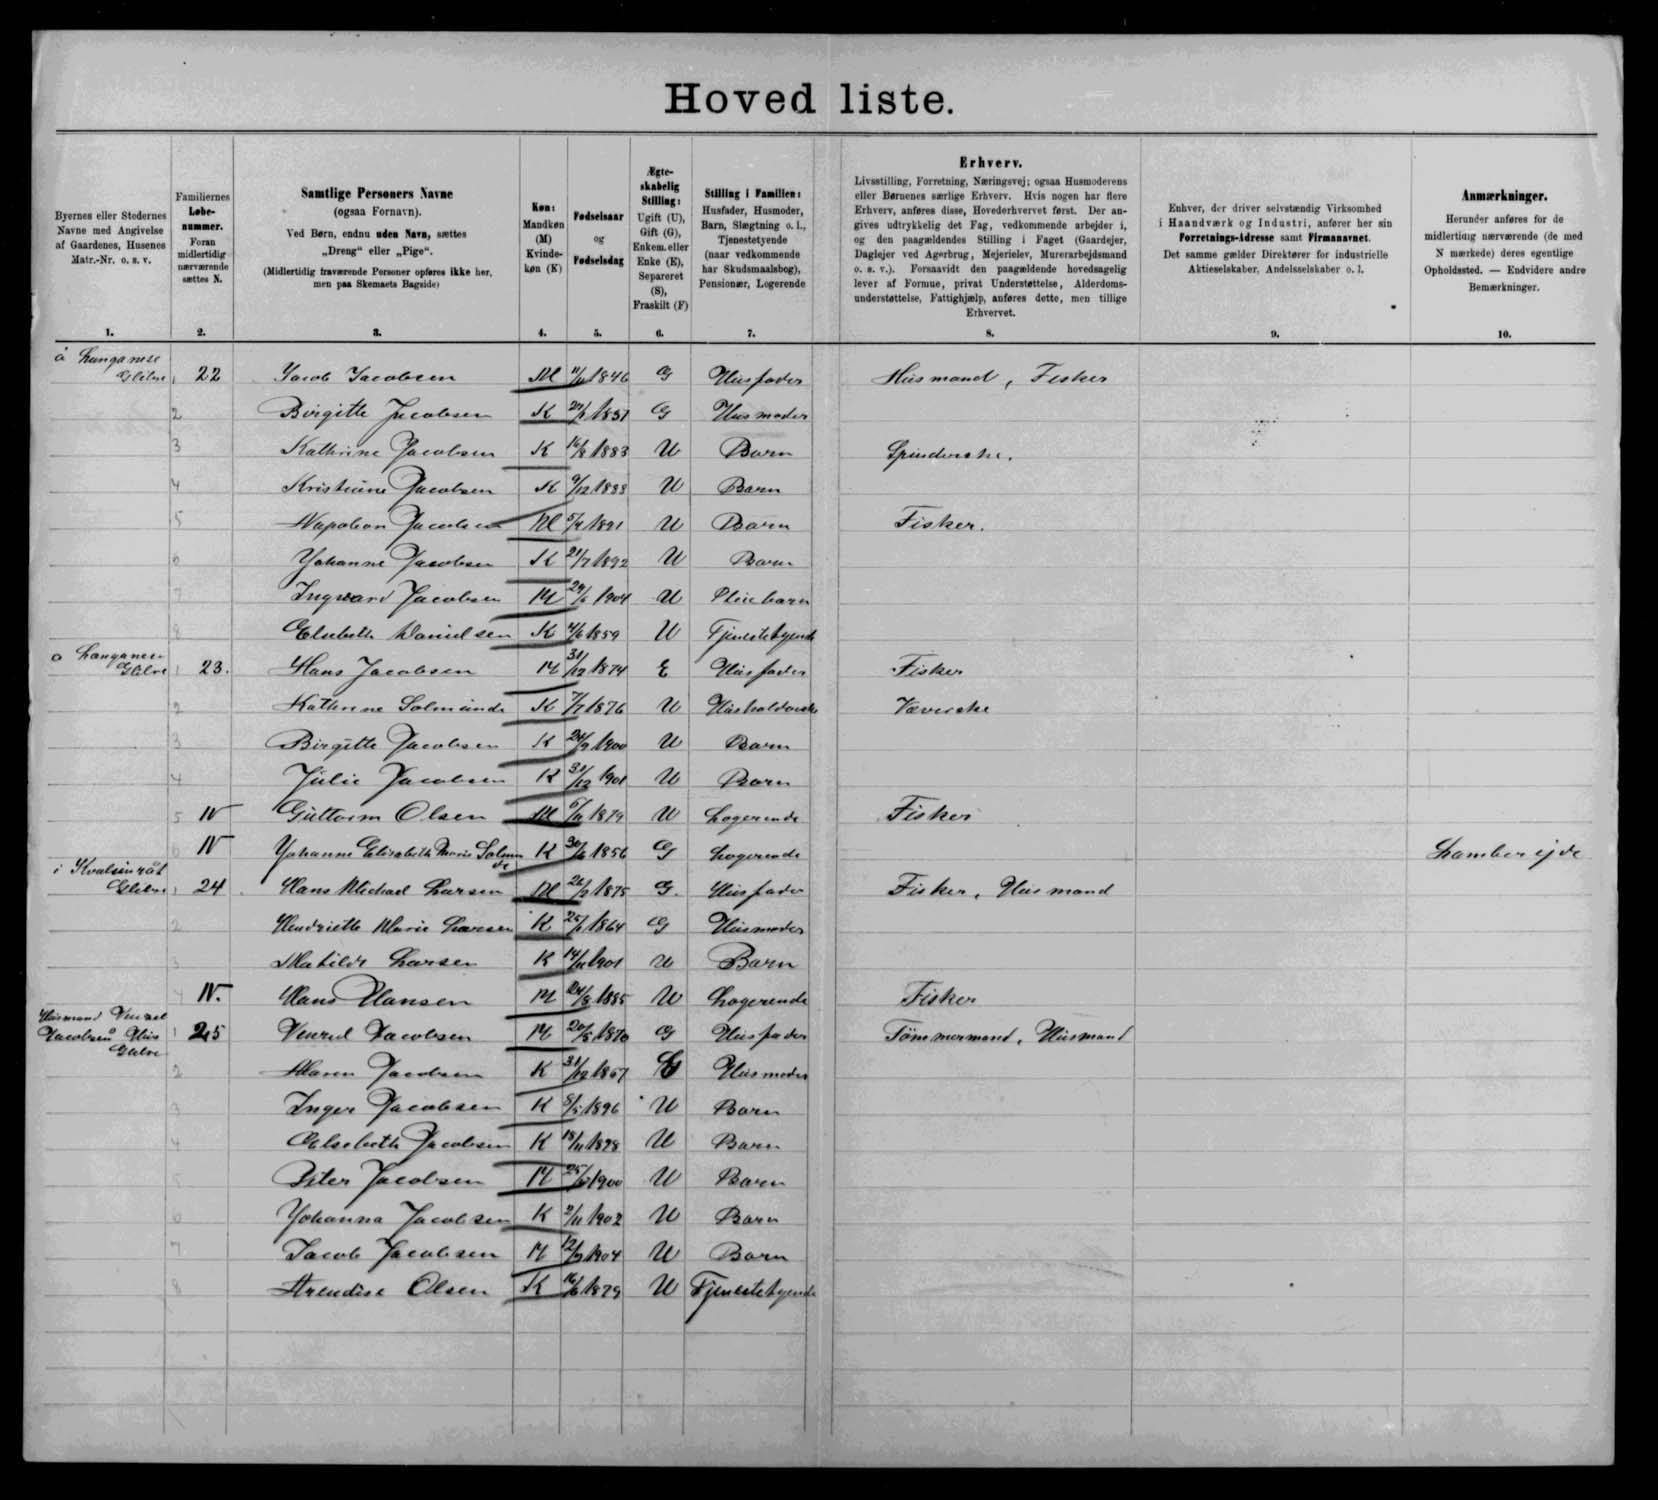 Hoved liste.
Byernes eller Stedernes Navne med Angivelse af Gaardenes, Husenes Matr.-Nr. o. s. v.
Familiernes Løbenummer. Foran midlertidig nærværende sættes N.
Samtlige Personers Navne
(ogsaa Fornavn).
Ved Børn, endnu uden Navn, sættes „Dreng“ eller „Pige“.
(Midlertidig fraværende Personer opføres ikke her, men paa Skemaets Bagside)
Køn: Mandkøn (M) Kvindekøn (K)
Fødselsaar og Fødselsdag
Ægteskabelig Stilling: Ugift (U), Gift (G), Enkem. eller Enke (E), Separeret (S), Fraskilt (F)
Stilling i Familien: Husfader, Husmoder, Barn, Slægtning o. l., Tjenestetyende (naar vedkommende har Skudsmaalsbog), Pensionær, Logerende
Erhverv.
Livsstilling, Forretning, Næringsvej; ogsaa Husmoderens eller Børnenes særlige Erhverv. Hvis nogen har flere Erhverv, anføres disse, Hovederhvervet først. Der angives udtrykkelig det Fag, vedkommende arbejder i, og den paagældendes Stilling i Faget (Gaardejer, Daglejer ved Agerbrug, Mejerielev, Murerarbejdsmand o. s. v.). Forsaavidt den paagældende hovedsagelig lever af Formue, privat Understøttelse, Alderdomsunderstøttelse, Fattighjælp, anføres dette, men tillige Erhvervet.
Enhver, der driver selvstændig Virksomhed i Haandværk og Industri, anfører her sin Forretnings-Adresse samt Firmanavnet. Det samme gælder Direktører for industrielle Aktieselskaber, Andelsselskaber o. l.
Anmærkninger.
Herunder anføres for de midlertidig nærværende (de med N mærkede) deres egentlige Opholdssted. — Endvidere andre Bemærkninger.
1. 2. 3. 4. 5. 6. 7. 8. 9. 10.
1 22 Jacob Jacobsen M 1846 G Husfader Husmand, Fisker
2 Birgitte Jacobsen K 1851 G Husmoder
3 Kathrine Jacobsen K 16/8 1883 U Barn Spinderske.
4 Kristiine Jacobsen K 9/12 1888 U Barn
5 Napoleon Jacobsen M 1891 U Barn Fisker.
6 Johanne Jacobsen K 21/7 1892 U Barn
7 Ingvard Jacobsen M 1904 U Pleiebarn
8 Elsebeth Danielsen K 1859 U Tjenestetyende
1 23. Hans Jacobsen M 31/12 1874 E Husfader Fisker
2 Kathrine K 7/7 1876 U Væverske
3 Birgitte Jacobsen K 24/9 1900 U Barn
4 Julie Jacobsen K 31/12 1901 U Barn
5 N Guttorm Olsen M 1879 U Logerende Fisker
6 N Johanne Elisabeth Marie K 1856 G Logerende Lamberejde
1 24 Hans Michael Larsen M 1875 G. Husfader Fisker, Husmand
2 Hendriette Marie Larsen K 1864 G Husmoder
3 Matilde Larsen K 14/11 1901 U Barn
4 N. Hans Hansen M 24/8 1885 U Logerende Fisker
Husmand
Jacobsens Hus 1 25 Jacobsen M 1870 G Husfader Tømmermand, Husmand
2 Maren Jacobsen K 31/12 1867 G Husmoder
3 Inger Jacobsen K 8/5 1896 U Barn
4 Elsebeth Jacobsen K 18/11 1898 U Barn
5 Peter Jacobsen M 1900 U Barn
6 Johanna Jacobsen K 2/11 1902 U Barn
7 Jacob Jacobsen M 12/9 1904 U Barn
8 Arendise Olsen K 1879 U Tjenestetyende